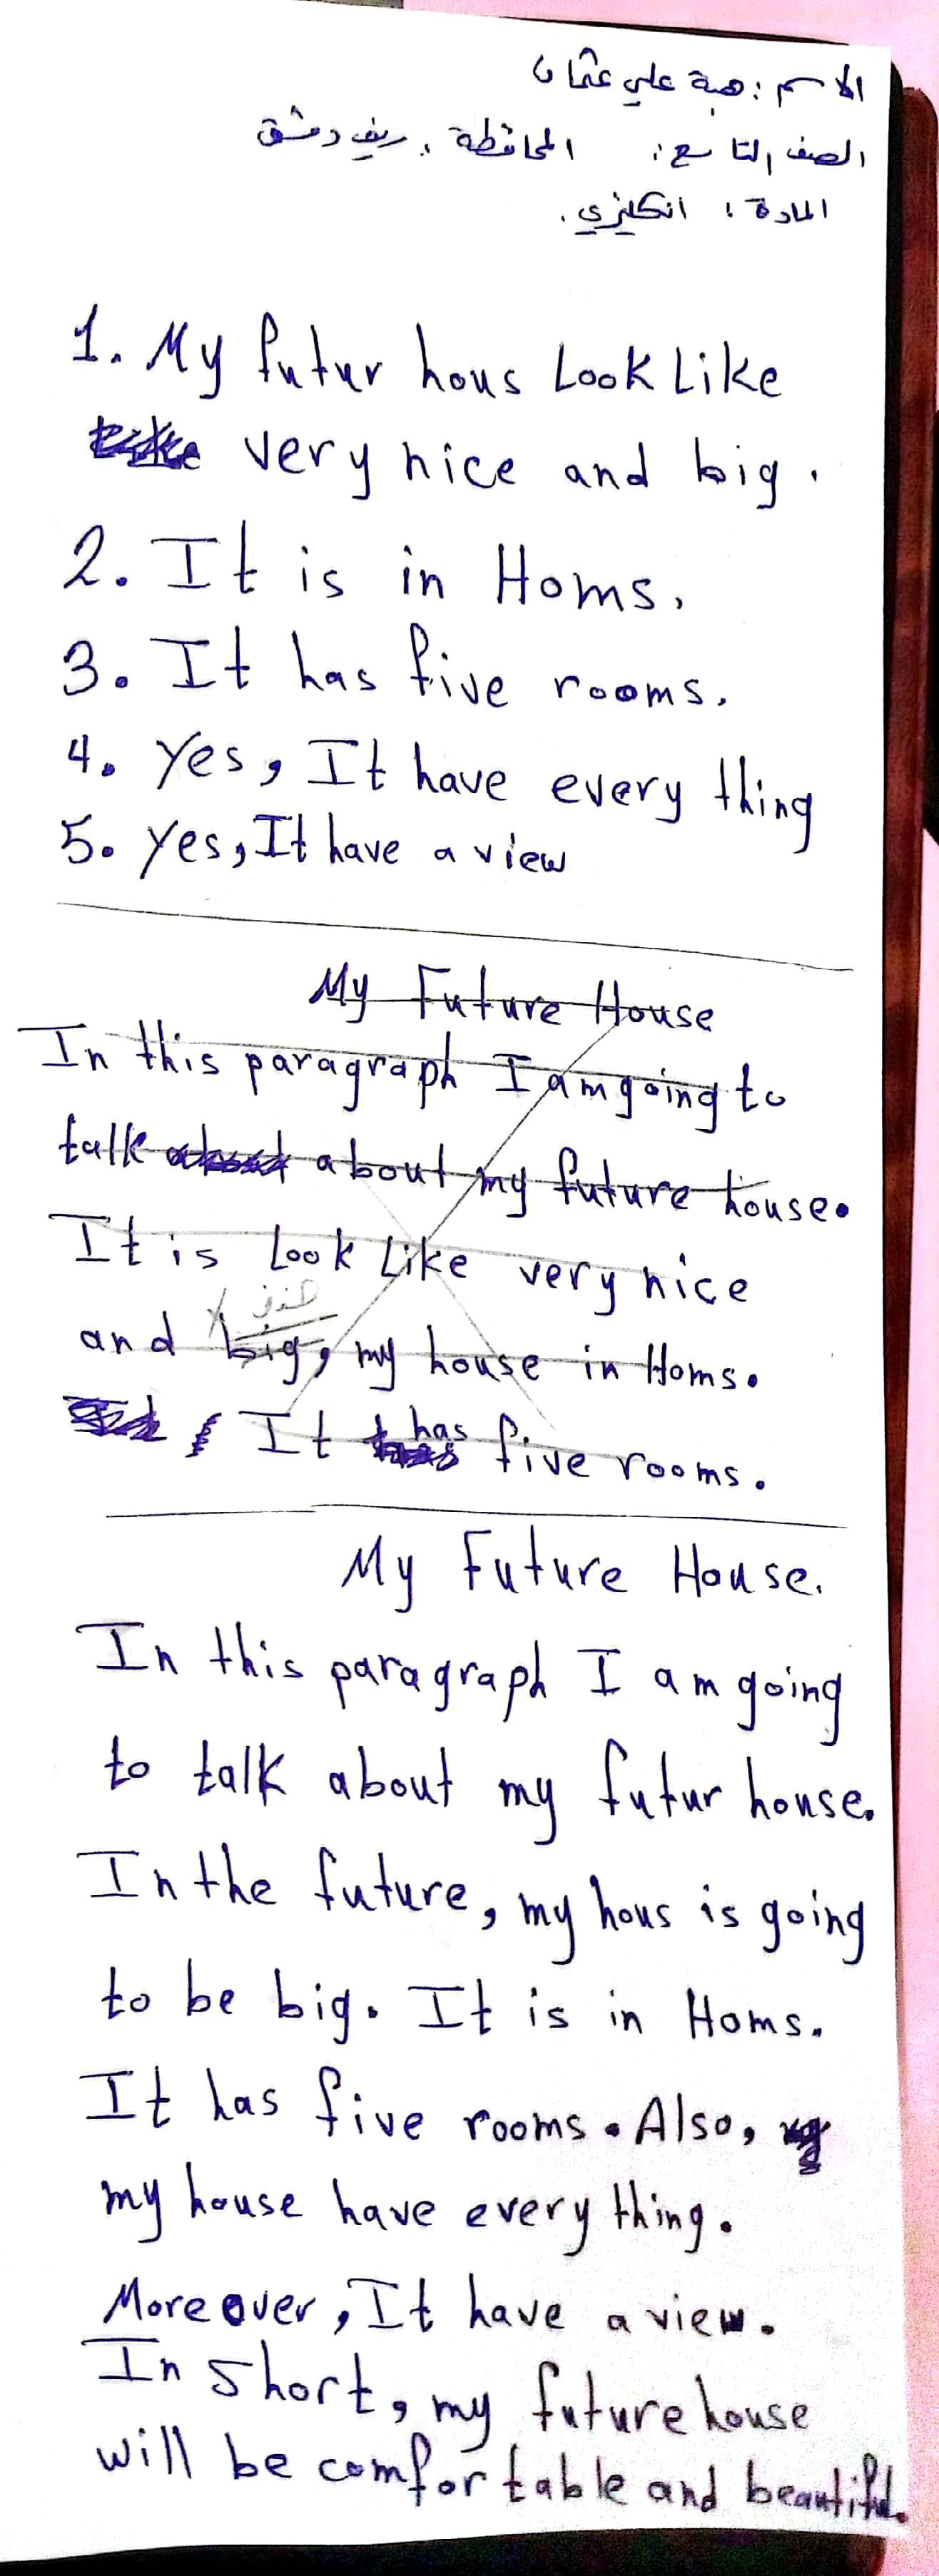 الاسم : هبة علي عثمان
الصف التاسع : المحافظة : ريف دمشق
المادة : انكليزي .
1. My futur hous Look Like
very nice and big .
2. It is in Homs.
3. It has five rooms.
4. Yes, It have every thing
5. Yes, It have a view
My Future House
In this paragraph I am going to
talk about my future house.
It is Look Like very nice
حذف
and big, my house in Homs.
It has five rooms.
My Future House.
In this paragraph I am going
to talk about my futur house.
In the future, my hous is going
to be big. It is in Homs.
It has five rooms. Also,
my house have every thing.
More over, It have a view.
In short, my future house
will be comfortable and beautiful.